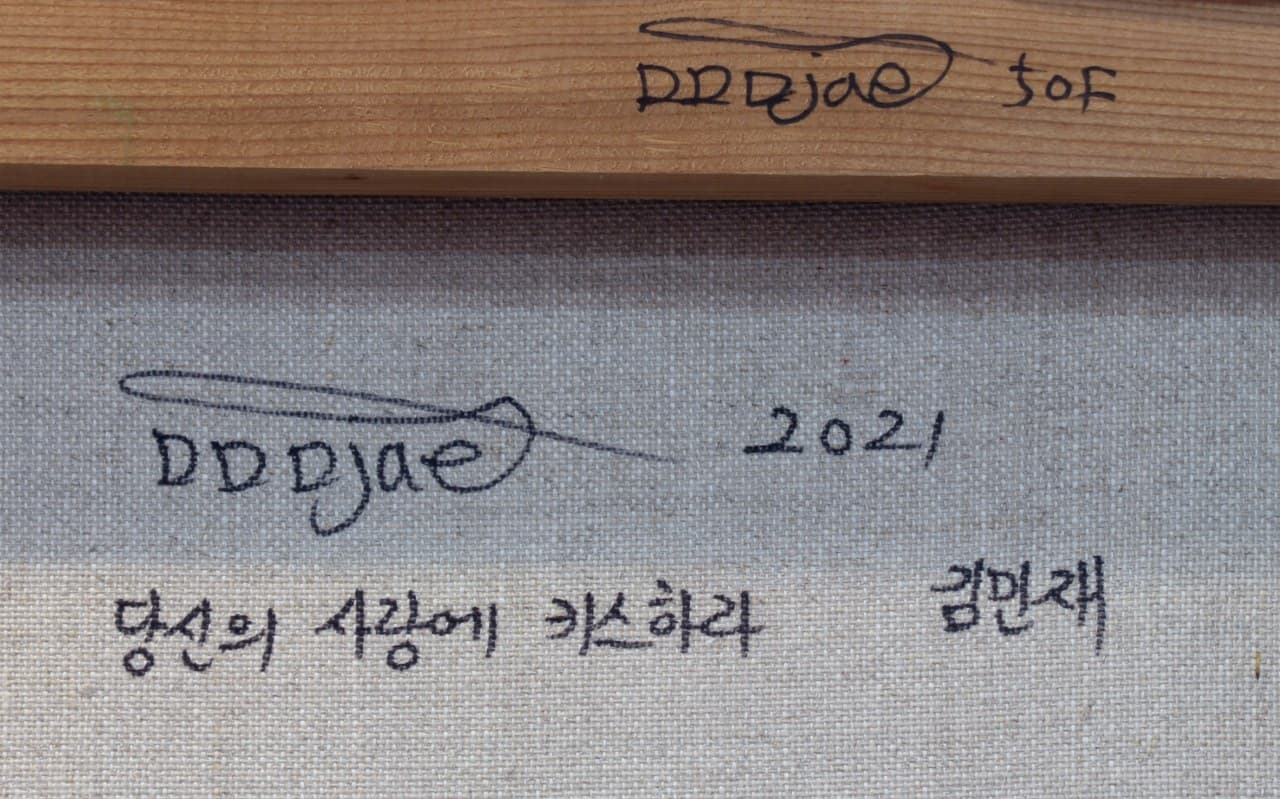 DDDjae 50F
DDDjae 2021
당신의 사랑에 키스하라 김민재